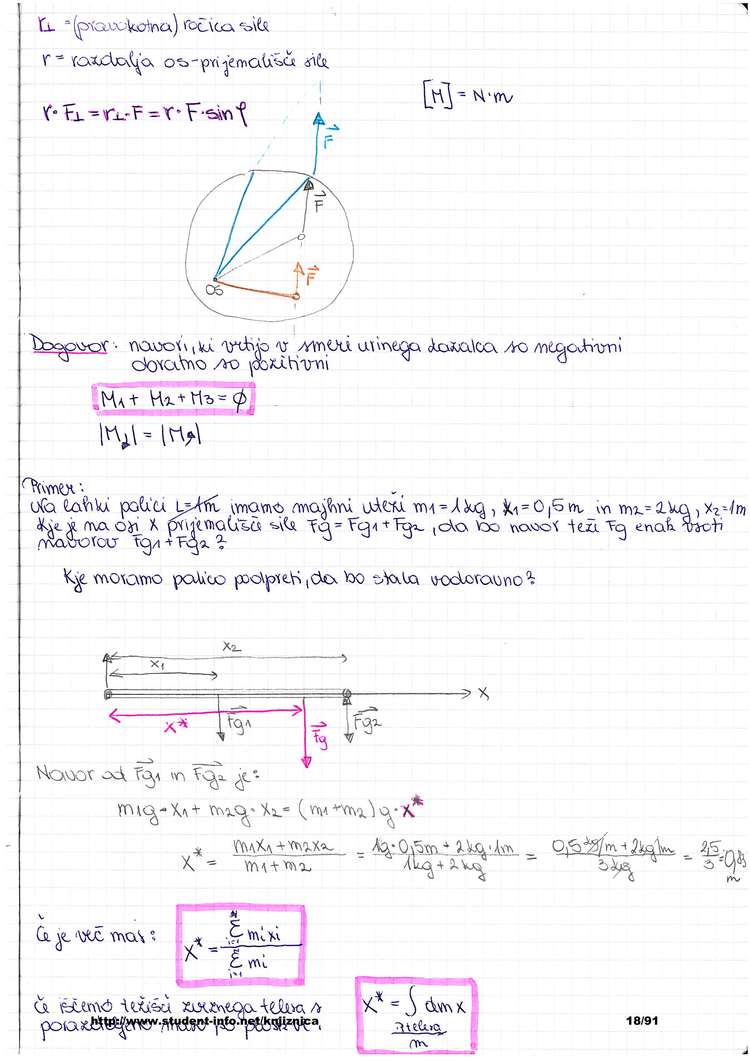 r⊥ = (pravokotna) ročica sile
r = razdalja os-prijemališče sile
[M] = N·m
r·F⊥ = r⊥·F = r·F·sin φ
F
F
F
os
Dogovor: navori, ki vrtijo v smeri urinega kazalca so negativni
obratno so pozitivni
M1 + M2 + M3 = ∅
Primer:
Na lahki palici L=1m imamo majhni uteži m1 = 1kg, x1 = 0,5m in m2 = 2kg, x2 = 1m
Kje je na osi x prijemališče sile Fg = Fg1 + Fg2, da bo navor teži Fg enak vsoti
navorov Fg1 + Fg2?
Kje moramo palico podpreti, da bo stala vodoravno?
x2
x1
x
x*
Fg1
Fg
Fg2
Navor od Fg1 in Fg2 je:
m1g·x1 + m2g·x2 = (m1+m2)g·x*
x* = (m1x1 + m2x2)/(m1 + m2) = (1kg·0,5m + 2kg·1m)/(1kg + 2kg) = (0,5kg/m + 2kg1m)/(3kg) = 2,5/3 = 0,83 m
Če je več mas: x* = Σ mixi / Σ mi
Če iščemo težišč zveznega telesa s
x* = ∫ dm x / m
po telesu
http://www.student-info.net/knjiznica
18/91